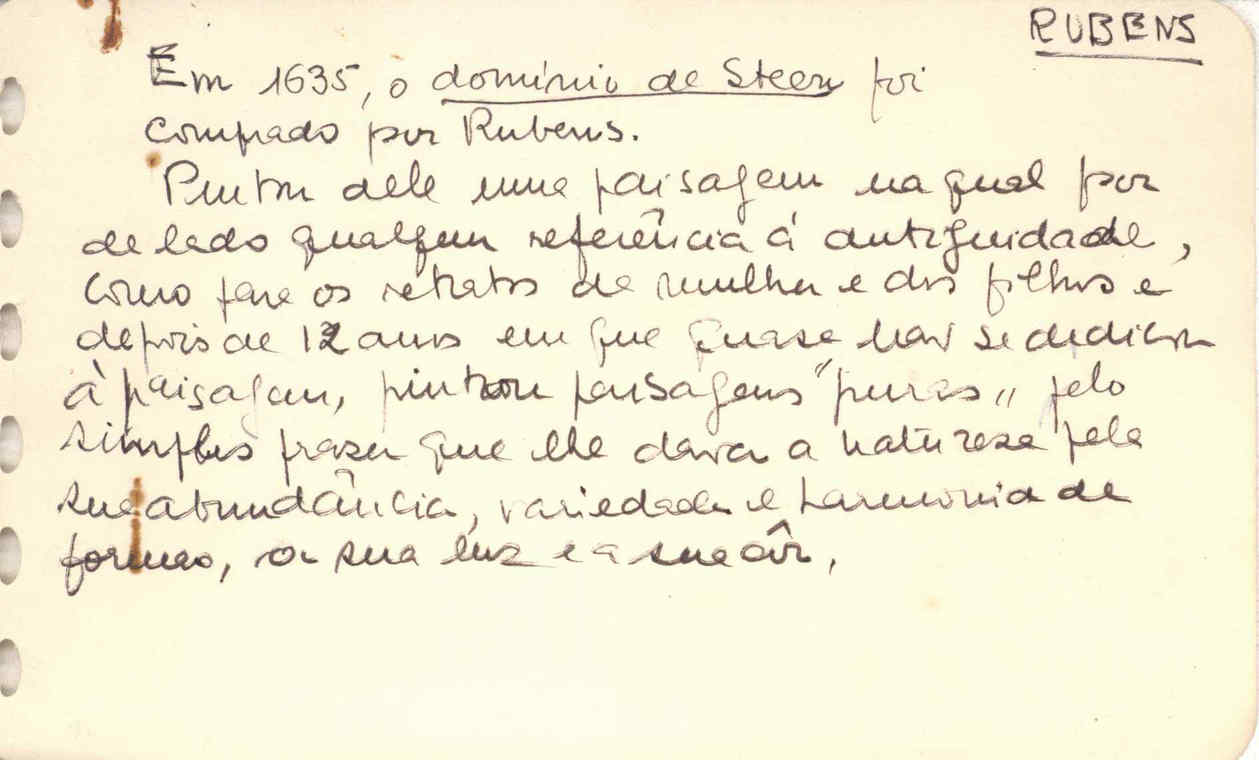 RUBENS
Em 1635, o domínio de Steen foi
comprado por Rubens.
Pintou dele uma paisagem na qual por
de lado qualquer referência á antiguidade,
como fez os retratos da mulher e dos filhos e
depois de 12 anos em que quase não se dedicou
à paisagem, pintou paisagens "puras" pelo
simples prazer que lhe dava a natureza pela
sua abundância, variedade e harmonia de
formas, a sua luz e a sua côr.